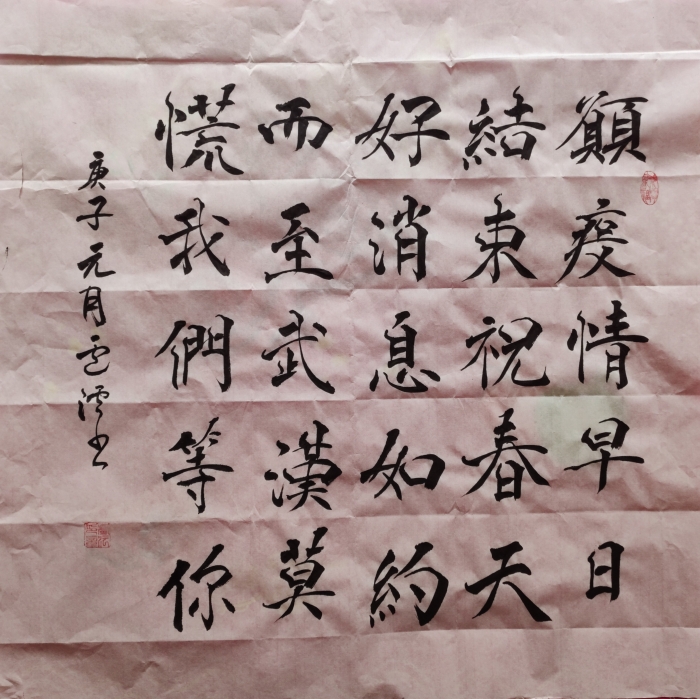 願疫情早日
結束祝春天
好消息如約
而至武漢莫
慌我們等你
庚子元月书